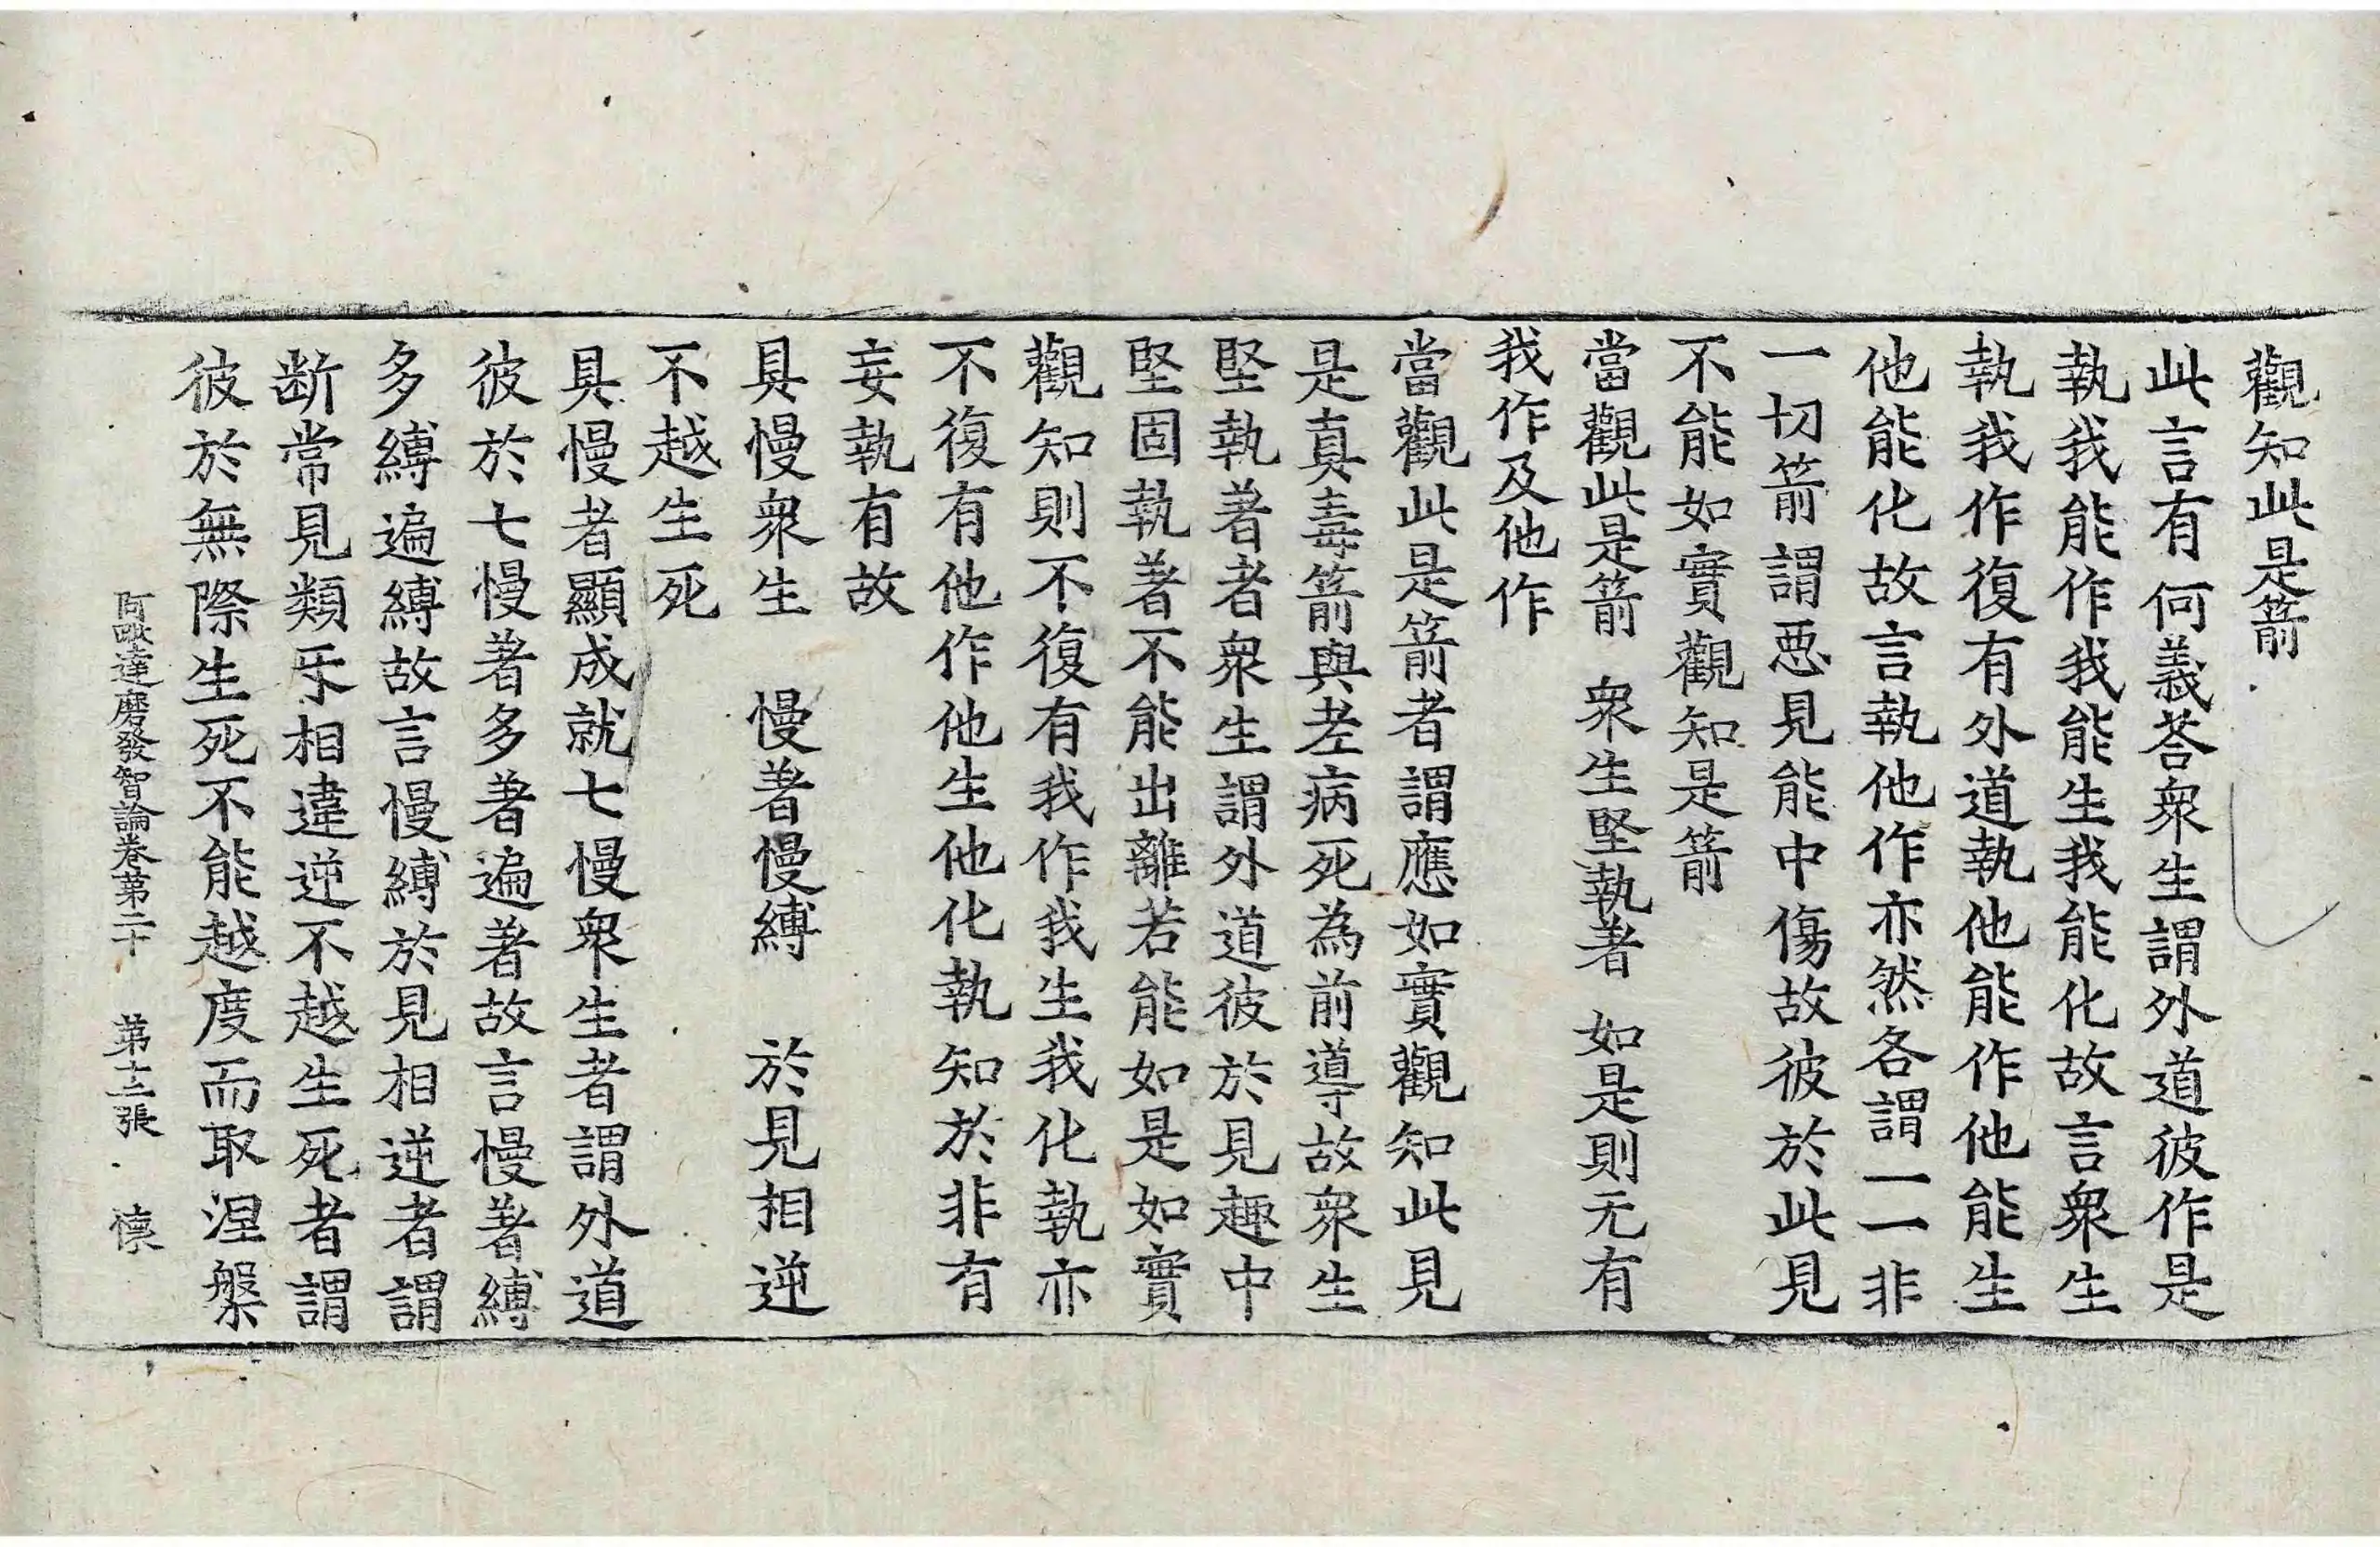 觀知此是箭
此言有何義荅衆生謂外道彼作是
執我能作我能生我能化故言衆生
執我作復有外道執他能作他能生
他能化故言執他作亦然各謂一一非
一切箭謂惡見能中傷故彼於此見
不能如實觀知是箭
當觀此是箭　衆生堅執著　如是則无有
我作及他作
當觀此是箭者謂應如實觀知此見
是真毒箭與老病死為前導故衆生
堅執著者衆生謂外道彼於見趣中
堅固執著不能出離若能如是如實
觀知則不復有我作我生我化執亦
不復有他作他生他化執知於非有
妄執有故
具慢衆生　慢著慢縛　於見相逆
不越生死
具慢者顯成就七慢衆生者謂外道
彼於七慢著多著遍著故言慢著縛
多縛遍縛故言慢縛於見相逆者謂
断常見類㸦相違逆不越生死者謂
彼於無際生死不能越度而取涅槃
阿毗達磨發智論卷第二十　第十三張　懷